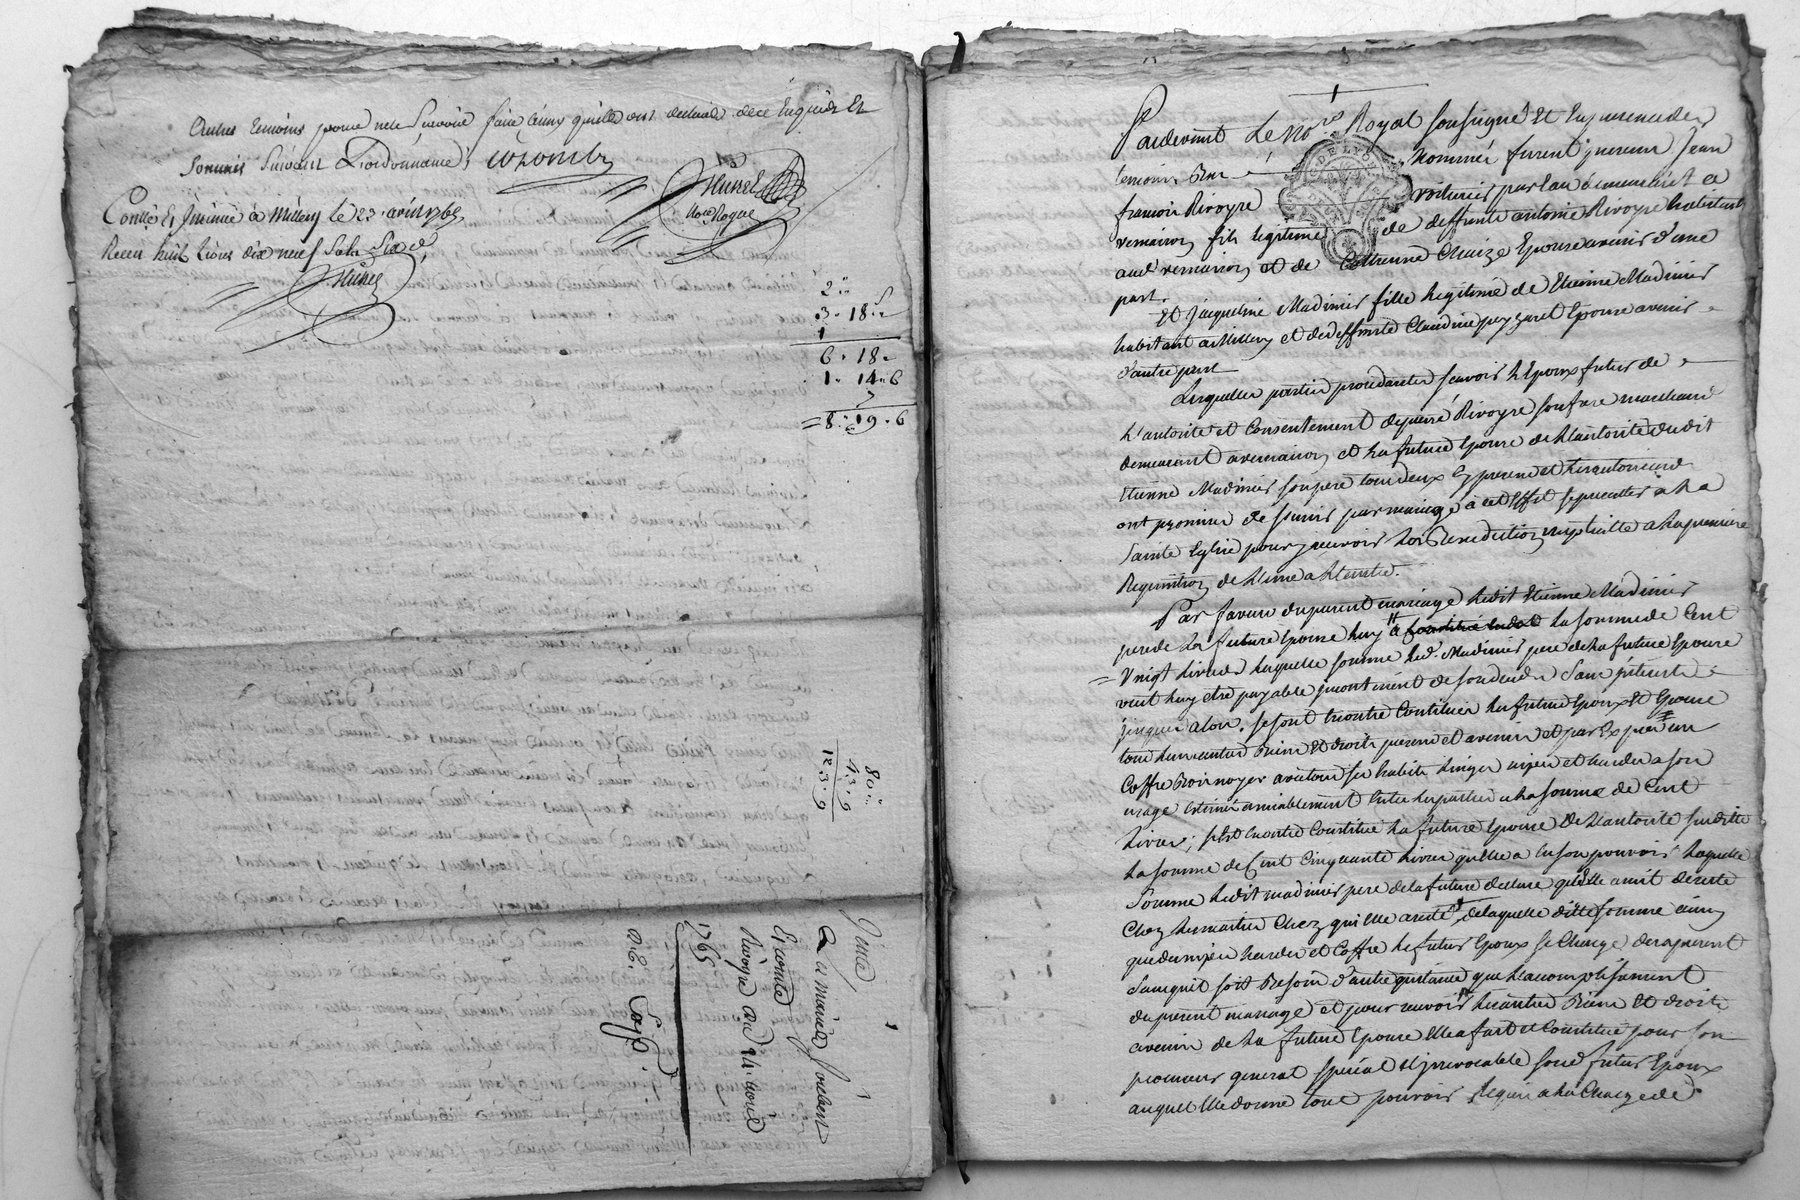 autres temoins pour ne le scavoir faire ainsy quils ont declaré de ce Enquis Et
sommés suivant L'ordonnance, colomb
Hunel
No.re Royal
Contlé Et Jnsinué à Millery le 23. avril 1765
Receu huit livres dix neuf sols six d.
Hunel
2 "
3 " 18 "
1
6 " 18 "
1 " 14 " 6
8 " 19 " 6
80 "
43 " 9
123 " 9
1
1
Rivoyre du
1765
Pardevant Le No.re Royal soussigné Et En presence des
temoins Bas nommés furent presens Jean
francois Rivoyre voiturier par Eau demeurant a
vernaison fils legitime de deffunt antoine Rivoyre habitant
aud vernaison et de Catherine Chaize Epoux avenir d'une
part.
Et Jacqueline Madinier fille legitime de Etienne Madinier
habitant a Millery et de deffunte Claudine peyzaret Epouse avenir
d'autre part
Lesquelles parties procedantes scavoir L'Epoux futur de
L'autorité et Consentement de pierre Rivoyre son frere marchand
demeurant a vernaison et La future Epouse de L'autorité dudit
Etienne Madinier son pere tous deux Cy presens et Les autorisans
ont promis de s'unir par mariage à cet Effet se presenter à La
Sainte Eglise pour y recevoir La Benediction nuptialle a La premiere
Requisition de L'une a L'autre.
Par faveur du present mariage Ledit Etienne Madinier
pere de La future Epouse Luy a La somme de Cent
Vingt Livres Laquelle somme Led. Madinier pere de La future Epouse
veut Luy etre payable incontinent de son deces Sans interets
jusques alors. se sont En outre Constitués Les futurs Epoux Et Epouse
tous Leurs autres Biens Et droits presens et avenir et par Exprès un
Coffre Bois noyer avec tous ses habits Linges nipes et hardes a son
usage Estimés amiablement Entre Les parties a La somme de Cent
Livres; s'Est En outre Constitué La future Epouse De L'autorité susditte
La somme de Cent Cinquante Livres qu'elle a En son pouvoir Laquelle
Somme Ledit madinier pere de La future declare qu'Elle a mit de reste
Chez Les maitres Chez qui Elle a resté, de Laquelle ditte somme ainsy
que des nipes hardes et Coffre Le futur Epoux se Charge des apresent
Sans quil soit Besoin d'autre quittance que L'accomplissement
du present mariage et pour recevoir Les autres Biens Et droits
avenir de La future Epouse Elle a fait et Constitué pour son
procureur general special Et jrrevocable son d. futur Epoux
auquel Elle donne tout pouvoir Requis a La Charge de